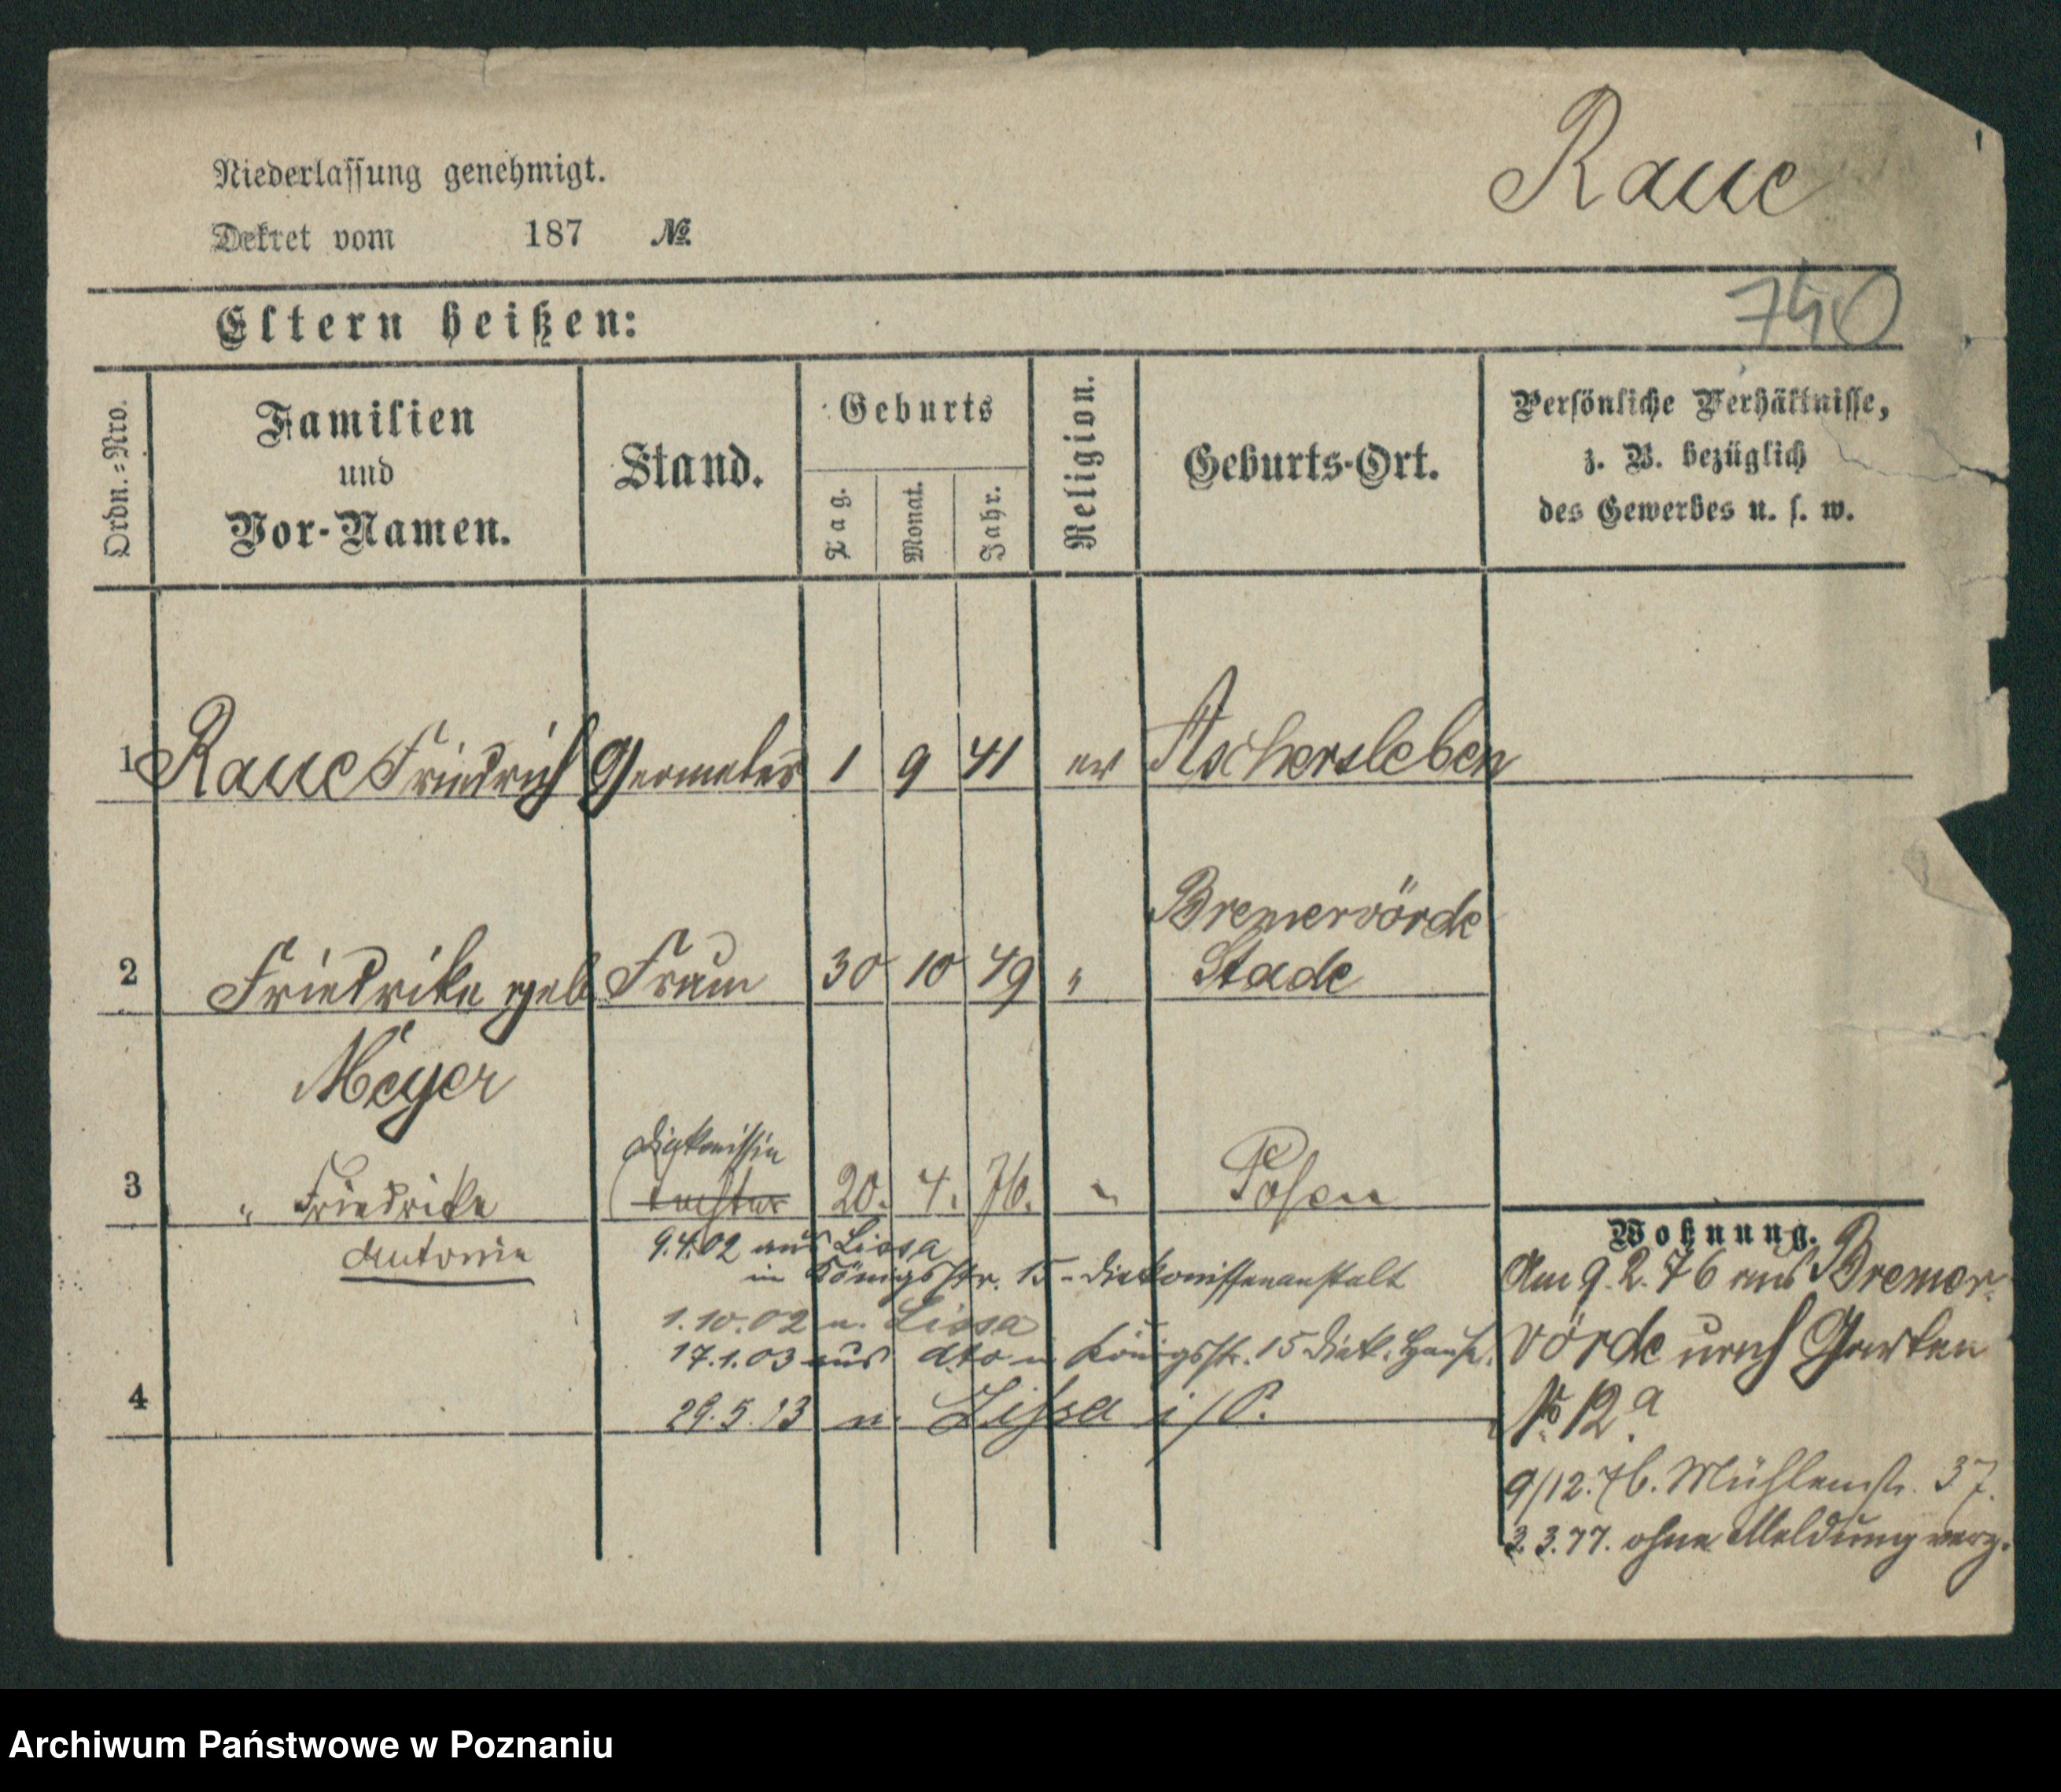 Niederlassung genehmigt.
Dekret vom 187 №
Raue
740
Eltern heißen:
Ordn.=Nro.
Familien
und
Vor-Namen.
Stand.
Geburts
Tag.
Monat.
Jahr.
Religion.
Geburts-Ort.
Persönliche Verhältnisse,
z. B. bezüglich
des Gewerbes u. s. w.
1 Raue Friedrich Geometer 1 9 41 ev Aschersleben
Bremervörde
2 Friedrike geb Frau 30 10 49 " Stade
Meyer
Diakonissin
3 " Friedrike Tochter 20. 4. 76. " Posen
Antonie
9.4.02 aus Lissa
in Königsstr. 15 - Diakonissenanstalt
1.10.02 n. Lissa
17.1.03 aus dto n Königsstr. 15 Diak. Hause.
4 29.5.13 n. Lissa i/P.
Wohnung.
Am 9.2.76 aus Bremer-
vörde nach Garten
№ 12a
9/12.76. Mühlenstr. 37.
3.3.77. ohne Meldung verz.
Archiwum Państwowe w Poznaniu